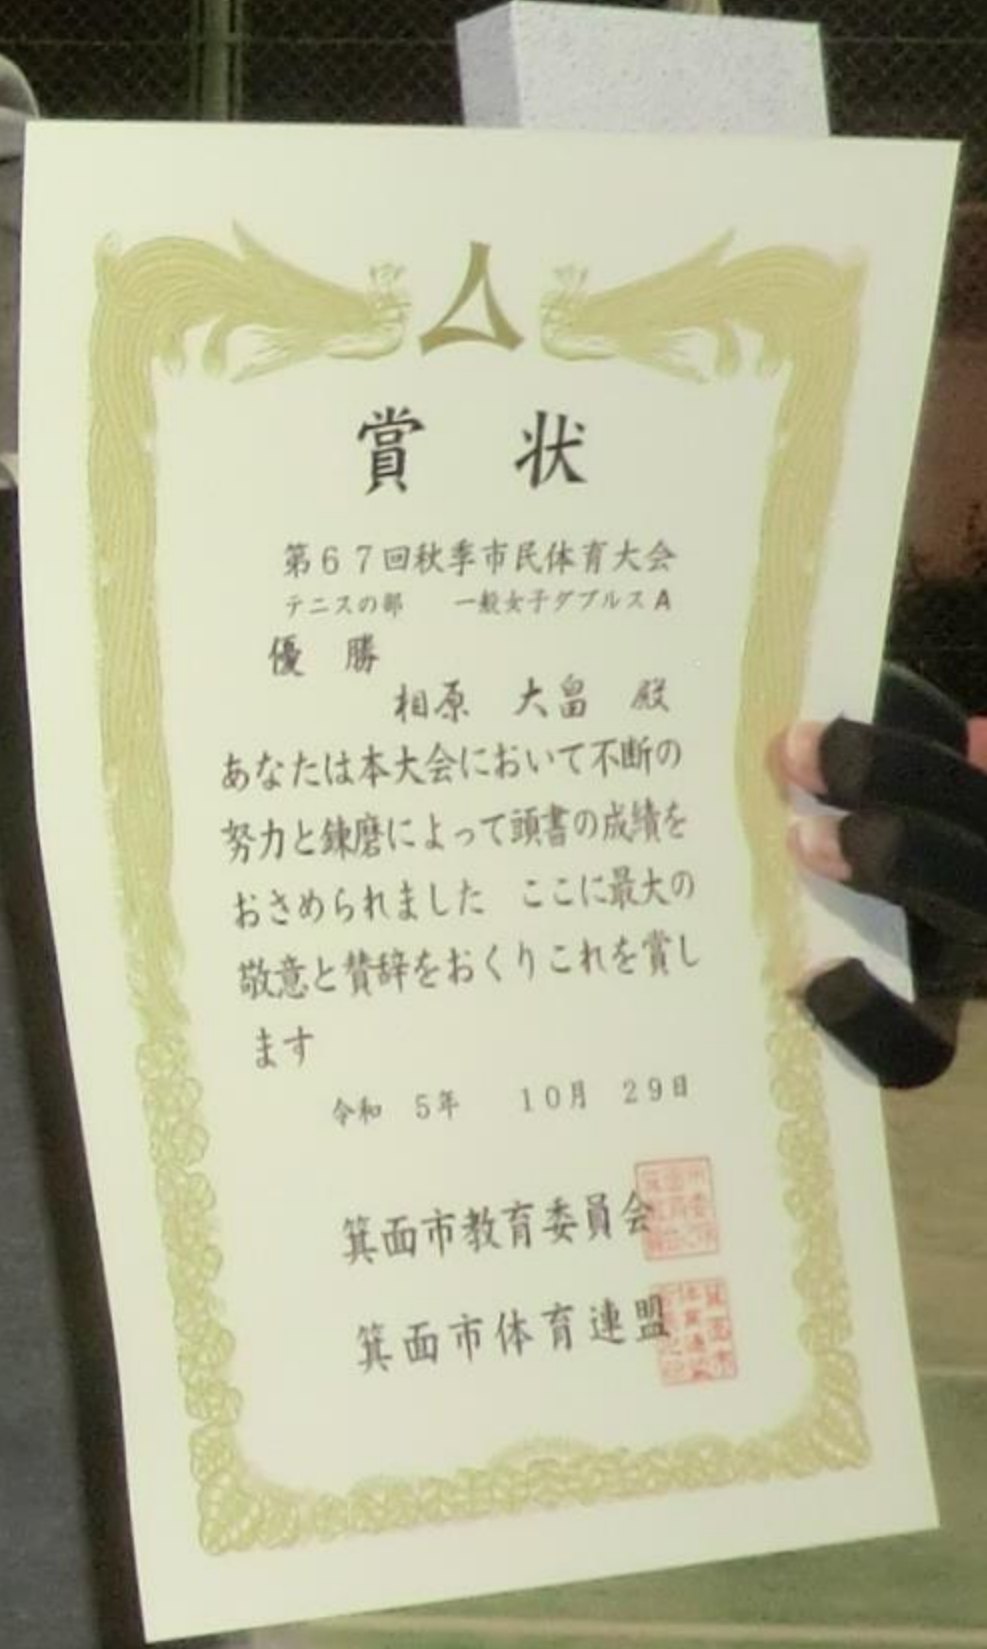 賞 状
第67回秋季市民体育大会
テニスの部 一般女子ダブルスA
優 勝
相原 大畠 殿
あなたは本大会において不断の
努力と錬磨によって頭書の成績を
おさめられました ここに最大の
敬意と賛辞をおくりこれを賞し
ます
令和 5年 10月 29日
箕面市教育委員会
箕面市体育連盟